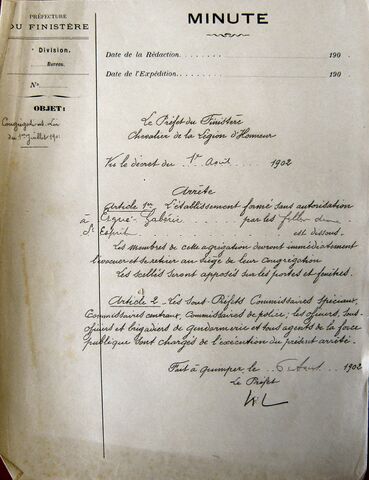 PRÉFECTURE
DU FINISTÈRE
e Division.
Bureau.
N°
OBJET:
Congrégat. et Loi
du 1er Juillet 1901
MINUTE
Date de la Rédaction........ 190 .
Date de l'Expédition........ 190 .
Le Préfet du Finistère
Chevalier de la Légion d'Honneur
Vu le décret du 1er Août 1902
Arrête
Article 1er L'établissement formé sans autorisation
à Ergué-Gabéric par les filles du
St Esprit est dissous.
Les membres de cette agrégation devront immédiatement
l'évacuer et se retirer au siège de leur Congrégation
Les scellés seront apposés sur les portes et fenêtres.
Article 2 - Les Sous Préfets Commissaires spéciaux,
Commissaires centraux, Commissaires de police; les officiers, sous-
officiers et brigadiers de Gendarmerie et tous agents de la force
publique sont chargés de l'exécution du présent arrêté.
Fait à Quimper le 6 Août 1902
Le Préfet